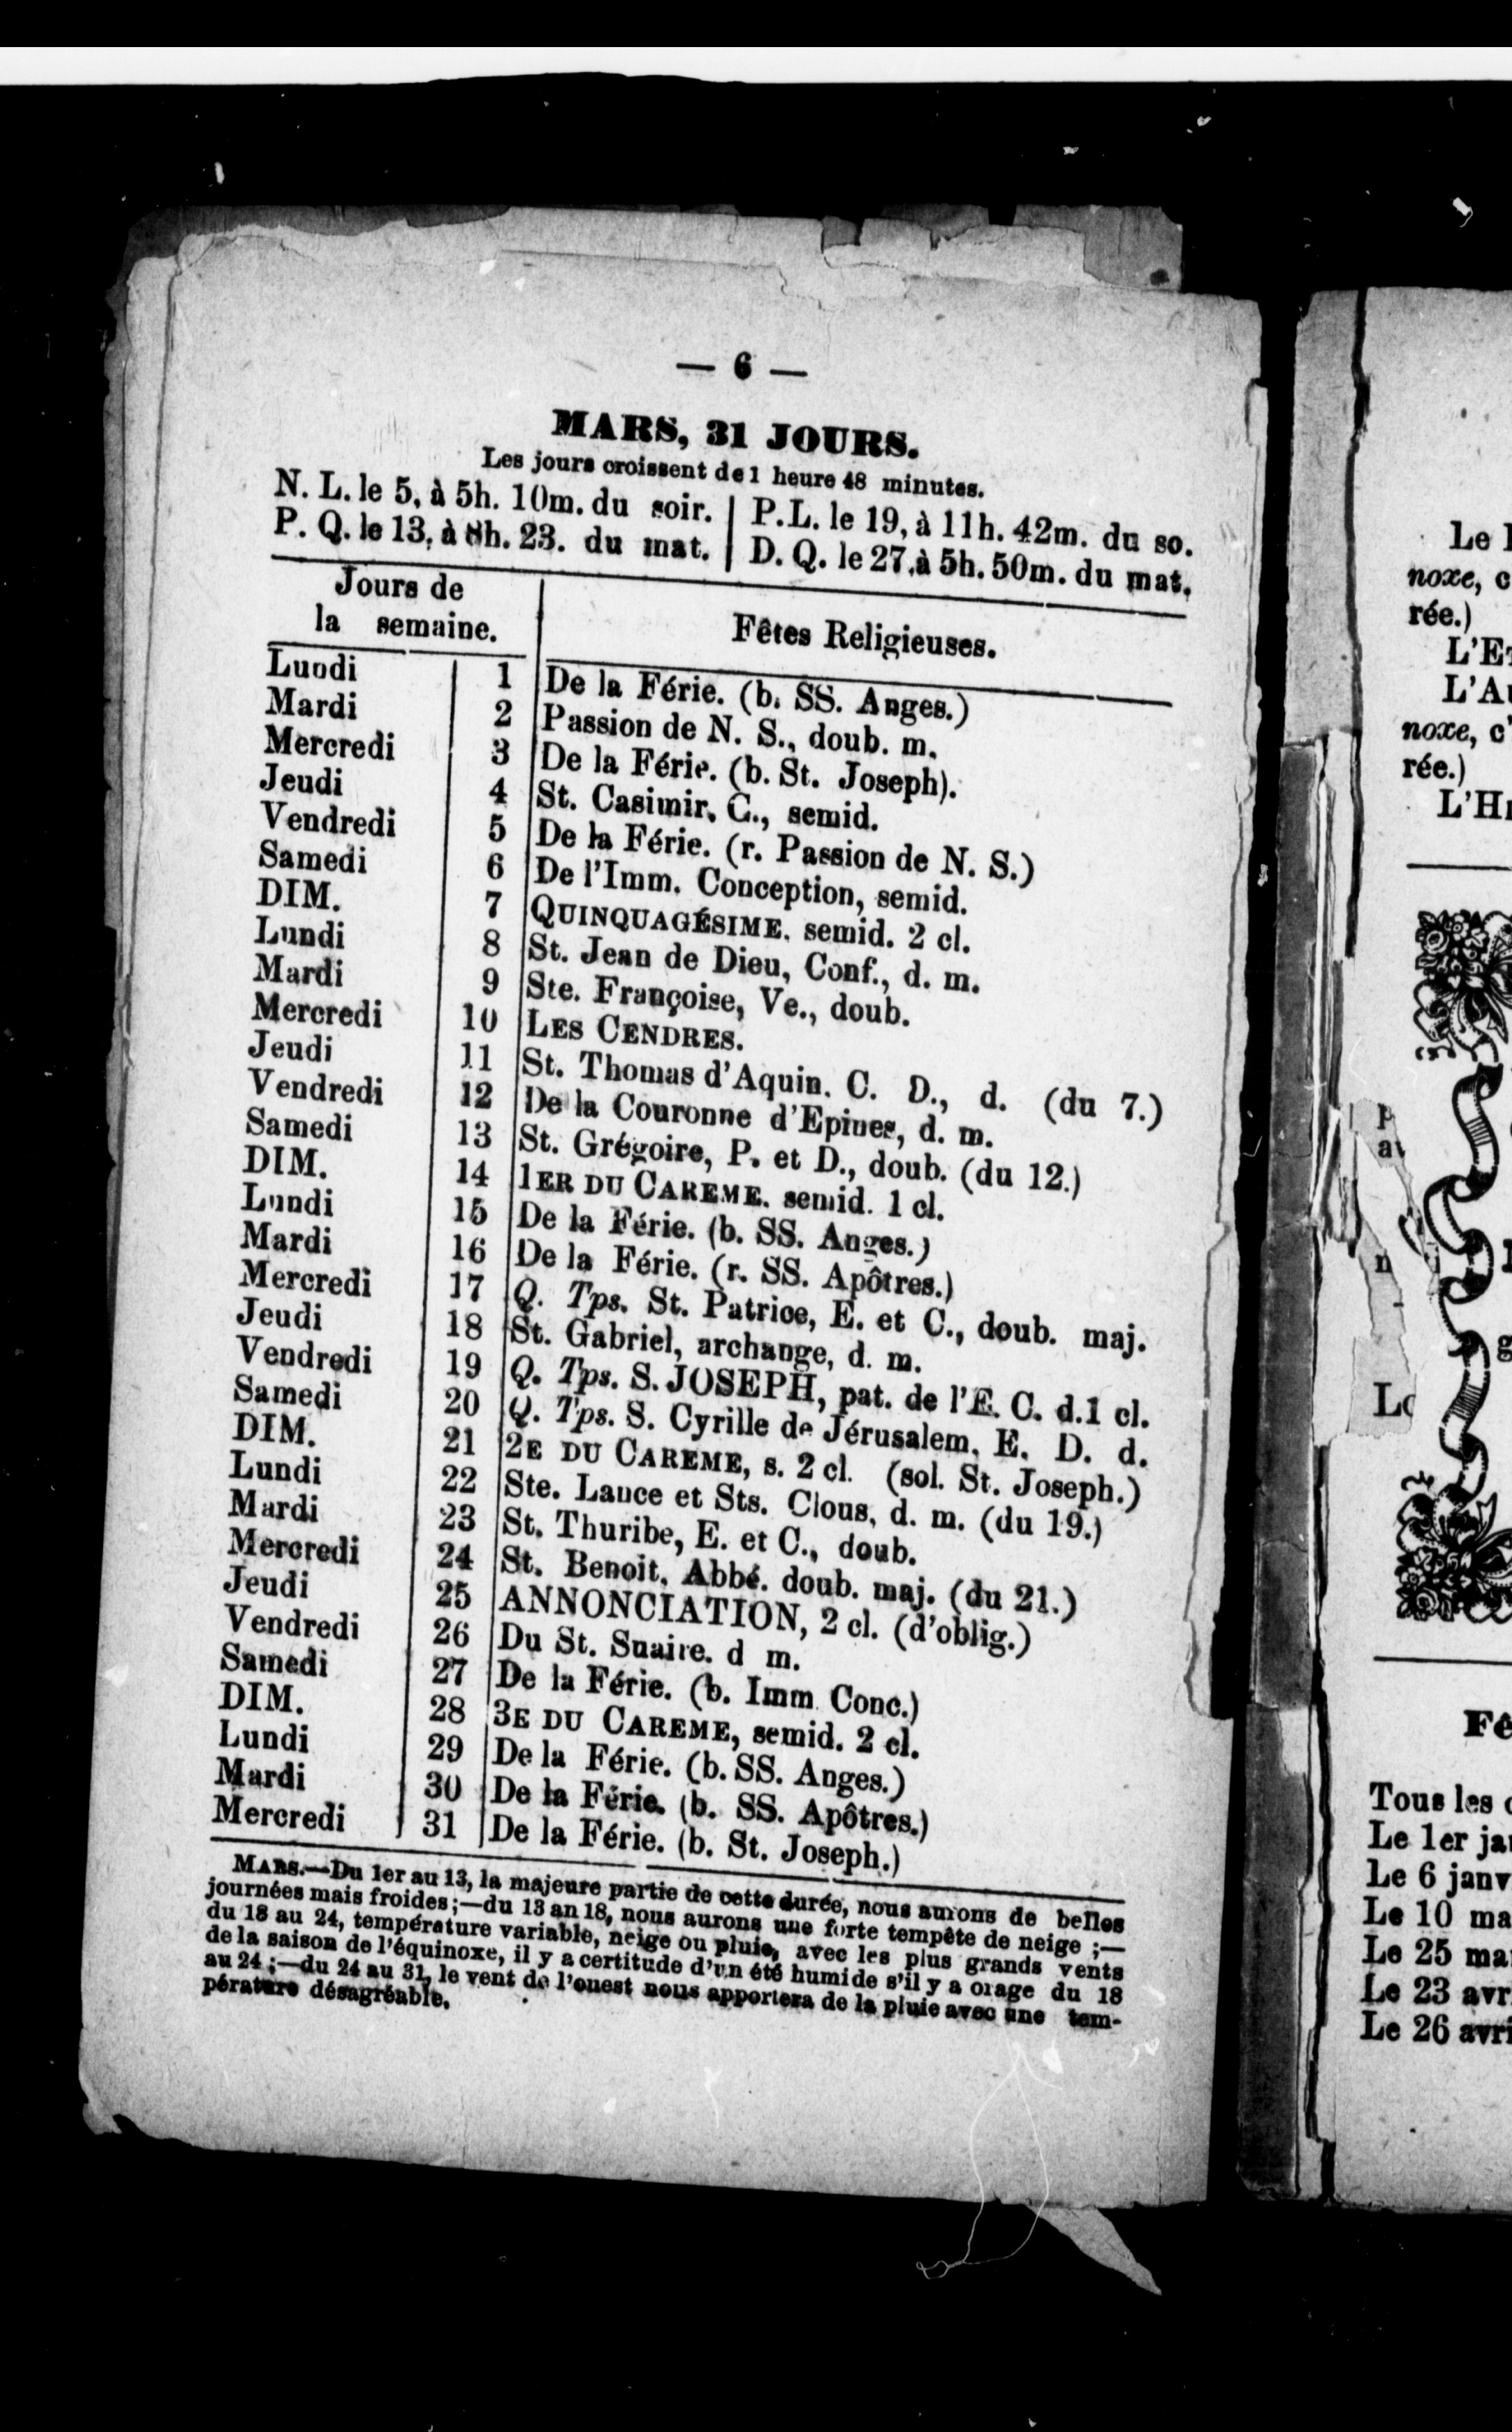 — 6 —
MARS, 31 JOURS.
Les jours croissent de 1 heure 48 minutes.
N. L. le 5, à 5h. 10m. du soir. | P. L. le 19, à 11h. 42m. du so.
P. Q. le 13, à 8h. 23. du mat. | D. Q. le 27, à 5h. 50m. du mat.
Jours de la semaine. | Fêtes Religieuses.
Lundi 1 De la Férie. (b. SS. Anges.)
Mardi 2 Passion de N. S., doub. m.
Mercredi 3 De la Férie. (b. St. Joseph).
Jeudi 4 St. Casimir, C., semid.
Vendredi 5 De la Férie. (r. Passion de N. S.)
Samedi 6 De l'Imm. Conception, semid.
DIM. 7 QUINQUAGÉSIME. semid. 2 cl.
Lundi 8 St. Jean de Dieu, Conf., d. m.
Mardi 9 Ste. Françoise, Ve., doub.
Mercredi 10 LES CENDRES.
Jeudi 11 St. Thomas d'Aquin. C. D., d. (du 7.)
Vendredi 12 De la Couronne d'Epines, d. m.
Samedi 13 St. Grégoire, P. et D., doub. (du 12.)
DIM. 14 1ER DU CAREME. semid. 1 cl.
Lundi 15 De la Férie. (b. SS. Anges.)
Mardi 16 De la Férie. (r. SS. Apôtres.)
Mercredi 17 Q. Tps. St. Patrice, E. et C., doub. maj.
Jeudi 18 St. Gabriel, archange, d. m.
Vendredi 19 Q. Tps. S. JOSEPH, pat. de l'E. C. d.1 cl.
Samedi 20 Q. Tps. S. Cyrille de Jérusalem, E. D. d.
DIM. 21 2E DU CAREME, s. 2 cl. (sol. St. Joseph.)
Lundi 22 Ste. Lance et Sts. Clous, d. m. (du 19.)
Mardi 23 St. Thuribe, E. et C., doub.
Mercredi 24 St. Benoit, Abbé. doub. maj. (du 21.)
Jeudi 25 ANNONCIATION, 2 cl. (d'oblig.)
Vendredi 26 Du St. Suaire. d m.
Samedi 27 De la Férie. (b. Imm. Conc.)
DIM. 28 3E DU CAREME, semid. 2 cl.
Lundi 29 De la Férie. (b. SS. Anges.)
Mardi 30 De la Férie. (b. SS. Apôtres.)
Mercredi 31 De la Férie. (b. St. Joseph.)
MARS.—Du 1er au 13, la majeure partie de cette durée, nous aurons de belles
journées mais froides ;—du 13 an 18, nous aurons une forte tempête de neige ;—
du 18 au 24, température variable, neige ou pluie, avec les plus grands vents
de la saison de l'équinoxe, il y a certitude d'un été humide s'il y a orage du 18
au 24 ;—du 24 au 31, le vent de l'ouest nous apportera de la pluie avec une tem-
pérature désagréable.
Le
noxe, c
rée.)
L'E
L'A
noxe, c'
rée.)
L'H
Fê
Tous les
Le 1er ja
Le 6 janv
Le 10 ma
Le 25 ma
Le 23 avr
Le 26 avri